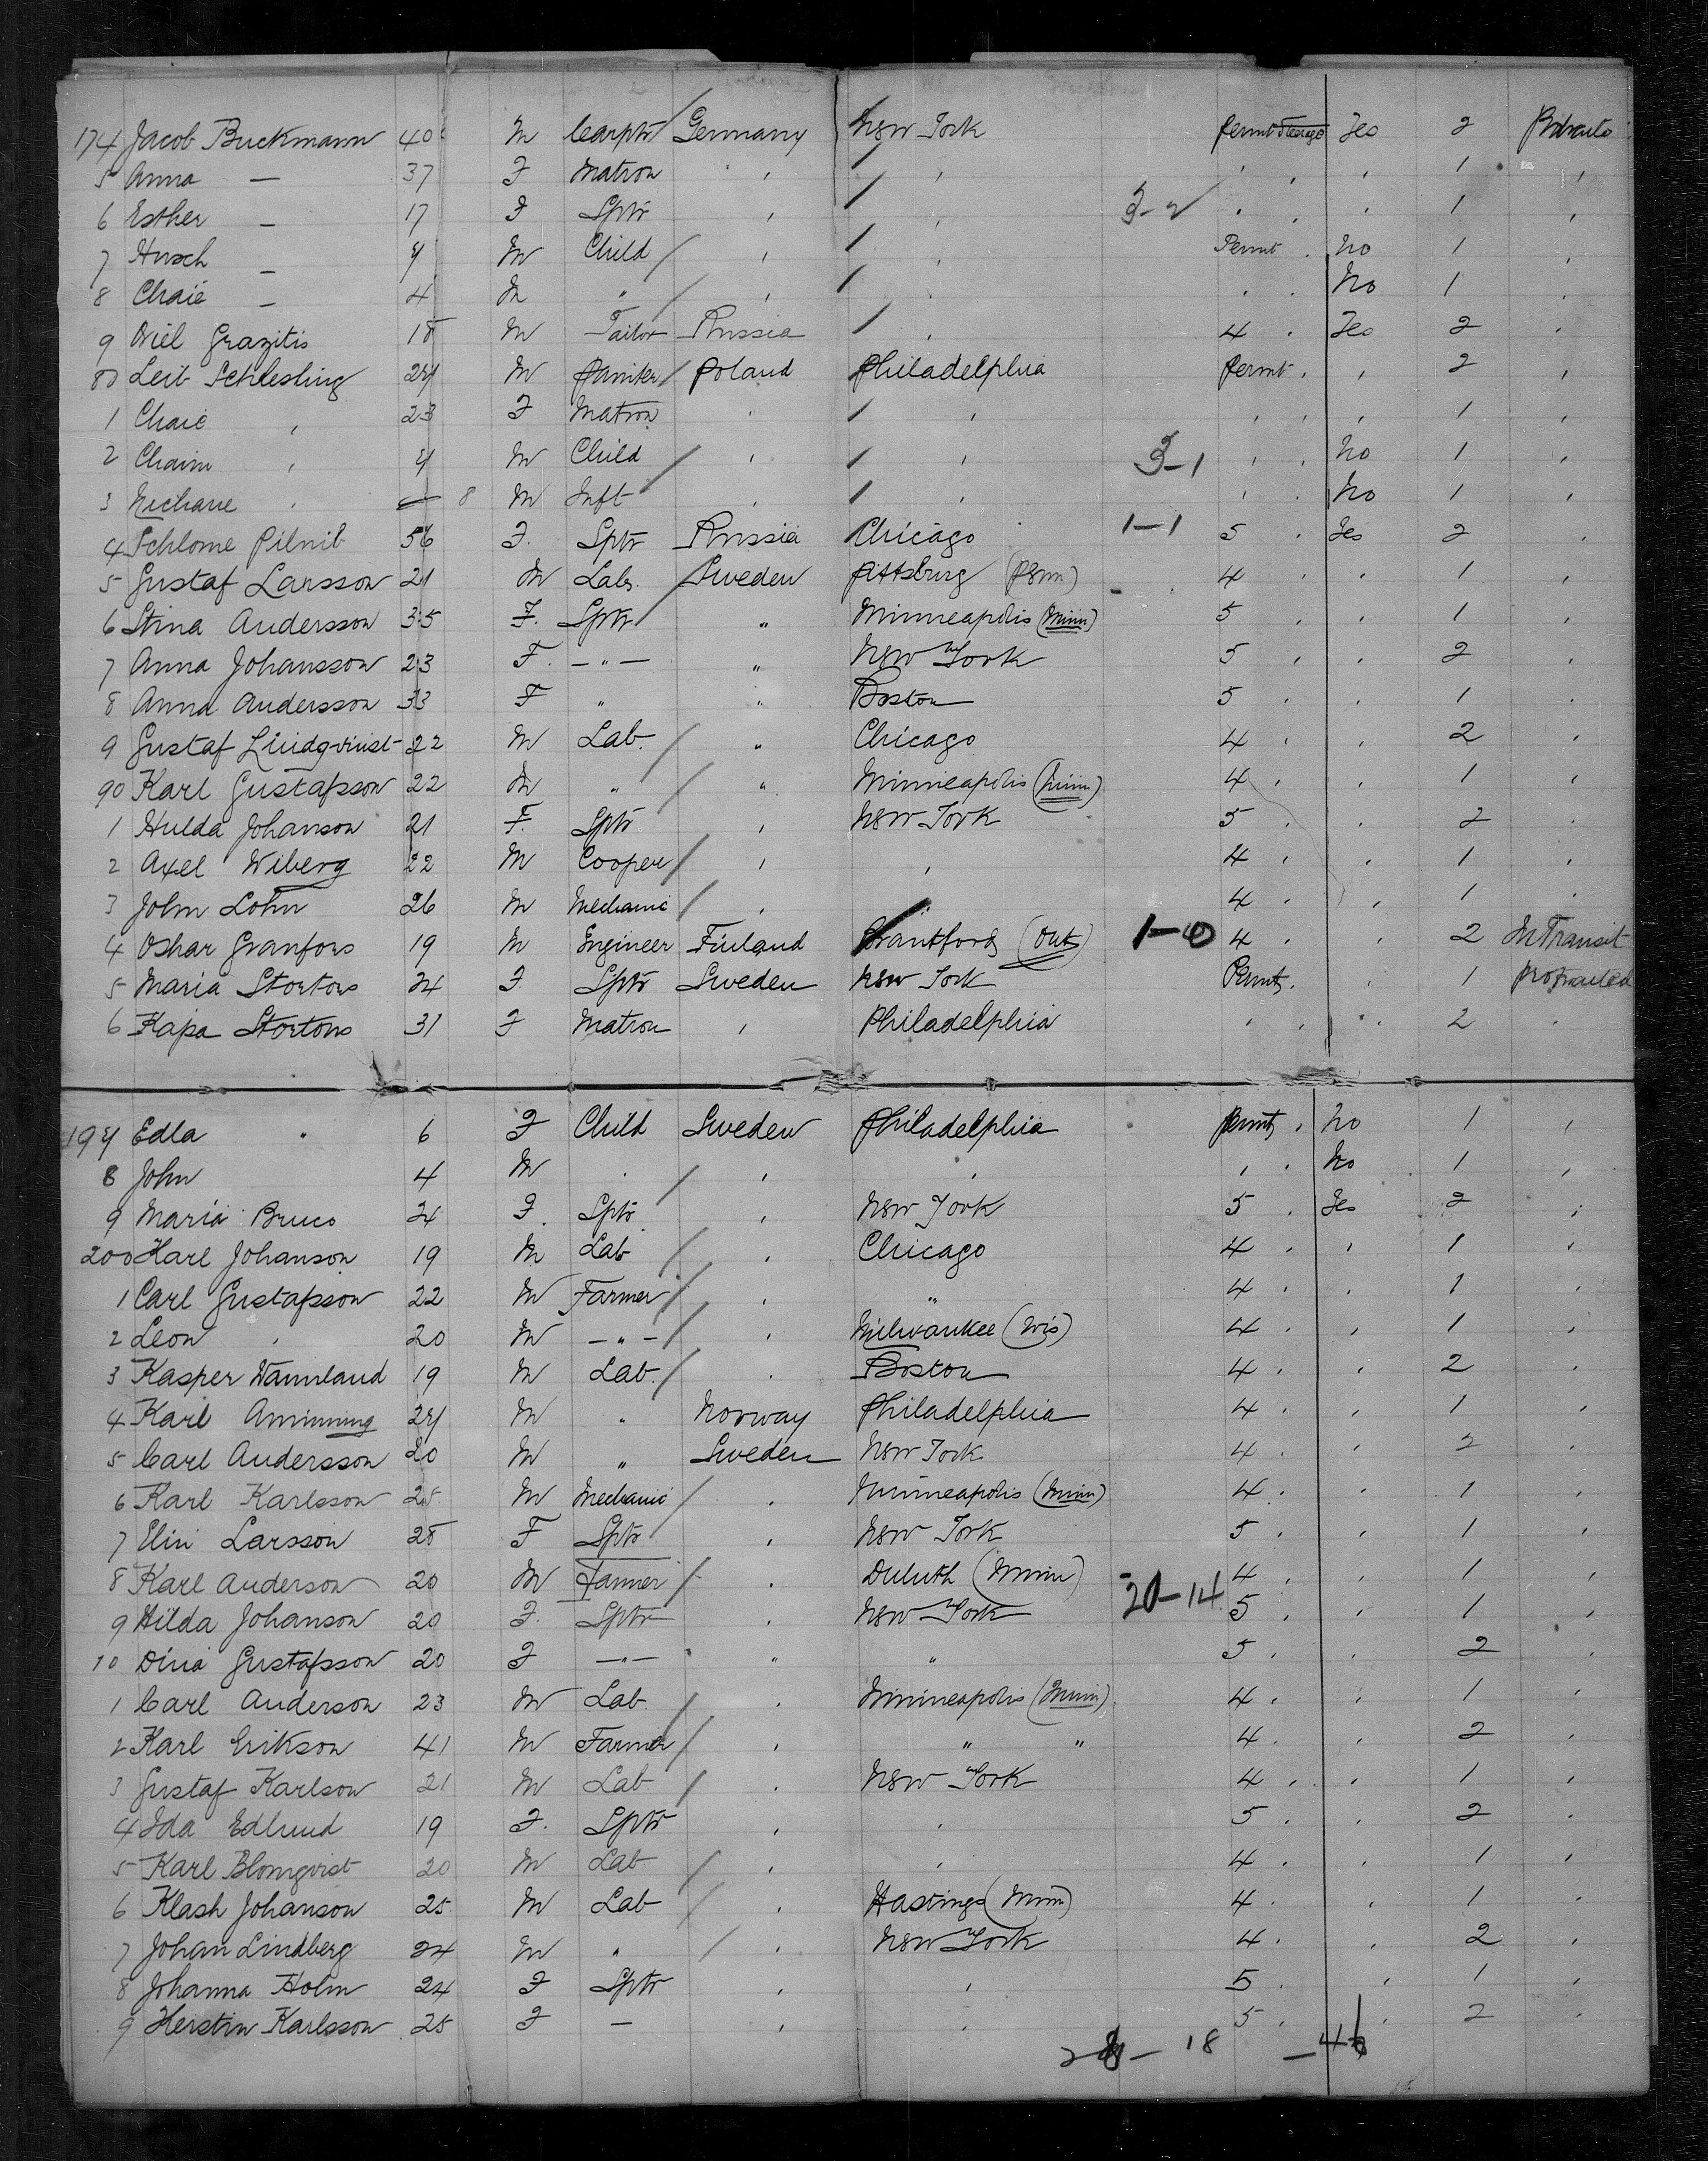 174 Jacob Buckmann 40 M Carptr Germany New York Permt Steerage Yes 2 Protracte
5 Anna — 37 F Matron , , , , , 1 ,
6 Esther — 17 F Sptr , , 3-2 , , , 1 ,
7 Hirsch — 9 M Child , , Permt , No 1 ,
8 Chaie — 4 M " , , , , No 1 ,
9 Grazitis 18 M Tailor Russia , 4 , Yes 2 ,
80 Leib Schlesling 24 M Poland Philadelphia Permt , , 2 ,
1 Chaie , 23 F Matron , , , , , 1 ,
2 Chaim , 4 M Child , , 3-1 , , No 1 ,
3 , 8 M Inft , , , , No 1 ,
4 Schlome Pilnit 56 F. Sptr Russia Chicago 1-1 5 , Yes 2 ,
5 Gustaf Larsson 21 M Labr. Sweden Pittsburg (Penn) 4 , , 1 ,
6 Stina Andersson 35 F. Sptr " Minneapolis (Minn) 5 , , 1 ,
7 Anna Johansson 23 F. — " — " New York 5 , , 2 ,
8 Anna Andersson 33 F " " Boston 5 , , 1 ,
9 Gustaf Lindqvist 22 M Lab. " Chicago 4 , , 2 ,
90 Karl Gustafsson 22 M " " Minneapolis (Minn) 4 , , 1 ,
1 Hulda Johanson 21 F. Sptr , New York 5 , , 2 ,
2 Axel Wiberg 22 M Cooper , , 4 , , 1 ,
3 John Lohn 26 M Mechanic , " 4 , , 1 ,
4 Oskar Granfors 19 M Engineer Finland Brantford (Ont) 1-0 4 , , 2 In Transit
5 Maria Stortors 24 F Sptr Sweden New York Permt, , 1 protracted
6 Kajsa Stortors 31 F Matron , Philadelphia , , , 2 ,
197 Edla " 6 F Child Sweden Philadelphia Permt , No 1 ,
8 John 4 M , , , , , No 1 ,
9 Maria Bruco 24 F. Sptr , New York 5 , Yes 2 ,
200 Karl Johanson 19 M Lab , Chicago 4 , , 1 ,
1 Carl Gustafsson 22 M Farmer , " 4 , , 1 ,
2 Leon , 20 M — " — , Milwaukee (Wis) 4 , , 1 ,
3 Kasper Wannland 19 M Lab. , Boston 4 , , 2 ,
4 Karl Amimning 24 M " Norway Philadelphia 4 , , 1 ,
5 Carl Andersson 20 M " Sweden New York 4 , , 2 ,
6 Karl Karlsson 25 M Mechanic , Minneapolis (Minn) 4 , , 1 ,
7 Elin Larsson 28 F Sptr , New York 5 , , 1 ,
8 Karl Anderson 20 M Farmer , Duluth (Minn) 4 , , 1 ,
9 Hilda Johanson 20 F. Sptr , New York 20-14 5 , , 1 ,
10 Dina Gustafsson 20 F — " — " " 5 , , 2 ,
1 Carl Anderson 23 M Lab. , Minneapolis (Minn) 4 , , 1 ,
2 Karl Erikson 41 M Farmer , " " 4 , , 2 ,
3 Gustaf Karlson 21 M Lab , New York 4 , , 1 ,
4 Ida Edlund 19 F. Sptr , , 5 , , 2 ,
5 Karl Blomqvist 20 M Lab , , 4 , , 1 ,
6 Klash Johanson 25 M Lab , Hastings (Minn) 4 , , 1 ,
7 Johan Lindberg 24 M " , New York 4 , , 2 ,
8 Johanna Holm 24 F Sptr , , 5 , , 1 ,
9 Kerstin Karlsson 25 F — , , 5 , , 2 ,
28-18 - 46